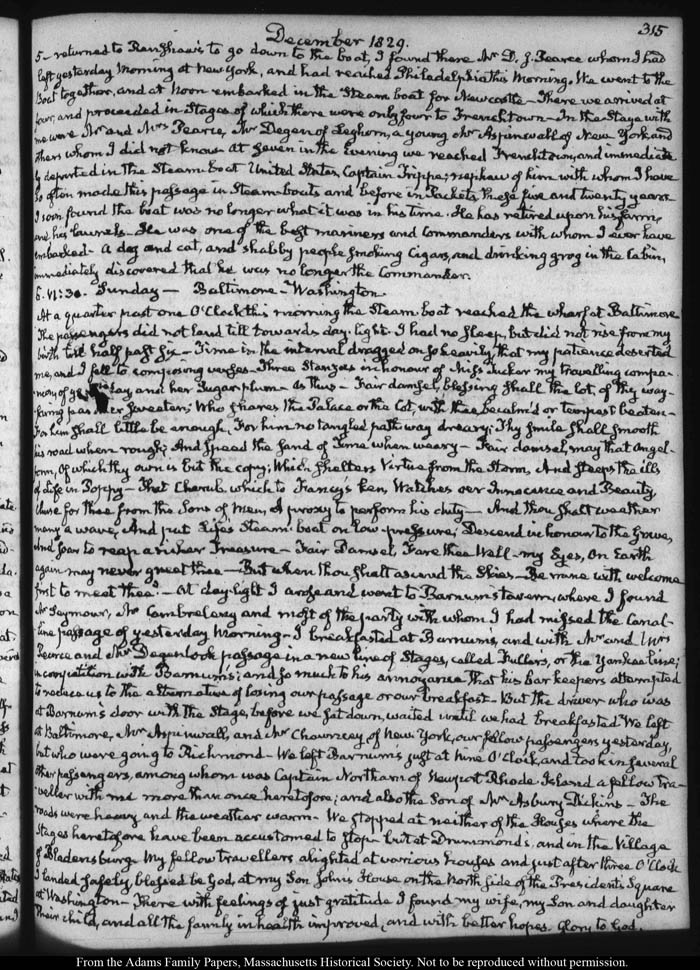 315
December 1829.
5— returned to Renshaw's to go down to the boat, I found there Mr D. J. Pearce whom I had
left yesterday Morning at New York, and had reached Philadelphia this Morning. We went to the
Boat together, and at Noon embarked in the Steam boat for Newcastle— There we arrived at
four, and proceeded in Stages of which there were only four to Frenchtown— In the Stage with
me were Mr and Mrs Pearce, Mr Degen of Leghorn, a young Mr Aspinwall of New York and
others whom I did not know. at Seven in the Evening we reached Frenchtown, and immediate
ly departed in the Steam boat United States, Captain Trippe; nephew of him with whom I have
so often made this passage in Steam-boats and before in Packets these five and twenty years.
I soon found the boat was no longer what it was in his time. He has retired upon his farm,
and his laurels— He was one of the best mariners and commanders with whom I ever have
embarked— A dog and cat, and shabby people smoking Cigars, and drinking grog in the Cabin,
immediately discovered that he was no longer the Commander.
6. VI:30. Sunday — Baltimore— Washington
At a quarter past one O'Clock this morning the Steam boat reached the wharf at Baltimore
The passengers did not land till towards day-light— I had no sleep, but did not rise from my
birth till half past six— Time in the interval dragged on so heavily that my patience deserted
me, and I fell to composing verses— Three Stanzas in honour of Miss Tucker my travelling compa-
nion of yesterday and her Sugar plum— as thus— Fair damsel, blessing shall the lot, of thy way-
faring pear ever sweeten; Who shares the Palace or the Cot, with thee, becalm'd or tempest beaten—
For him shall little be enough, For him no tangled path way dreary; Thy smile shall smooth
his road when rough; And speed the sand of Time when weary— Fair damsel, may that Angel-
form, Of which thy own is but the copy; Which shelters Virtue from the Storm, And steeps the ills
of Life in Poppy— That Cherub which to Fancy's ken, Watches o'er Innocence and Beauty,
Chuse for thee from the Sons of Men, A proxy to perform his duty— And thou shalt weather
many a wave, And put Life's Steam boat on low-pressure; Descend in honour to the Grave,
And soar to reap a richer Treasure— Fair Damsel, Fare thee Well— my Eyes, On Earth
again may never greet thee— But when thou shalt ascend the Skies— Be mine with welcome
first to meet thee.— At day-light I arose and went to Barnum's tavern, where I found
Mr Seymour, Mr Cambreleng and most of the party with whom I had missed the Canal-
line passage of yesterday Morning— I breakfasted at Barnum's, and with Mr and Mrs
Pearce and Mr Degen took passage in a new line of Stages, called Fuller's, or the Yankee line;
in competition with Barnum's; and so much to his annoyance that his bar keepers attempted
to reduce us to the alternative of losing our passage or our breakfast— But the driver who was
at Barnum's door with the Stage, before we sat down, waited until we had breakfasted. We left
at Baltimore, Mr Aspinwall, and Mr Chauncey, of New York, our fellow passengers yesterday,
but who were going to Richmond— We left Barnum's just at nine O'Clock, and took in several
other passengers, among whom was Captain Northam of Newport Rhode-Island a fellow tra-
veller with me more than once heretofore; and also the Son of Mr Asbury Dickins— The
roads were heavy and the weather warm— We stopped at neither of the Houses where the
Stages heretofore have been accustomed to stop— but at Drummond's, and in the Village
of Bladensburg. My fellow travellers alighted at various houses and just after three O'Clock
I landed safely, blessed be God, at my Son John's House on the North side of the President's Square
at Washington— There with feelings of just gratitude I found my wife, my Son and daughter
their child, and all the family in health improved, and with better hopes. Glory to God.
From the Adams Family Papers, Massachusetts Historical Society. Not to be reproduced without permission.